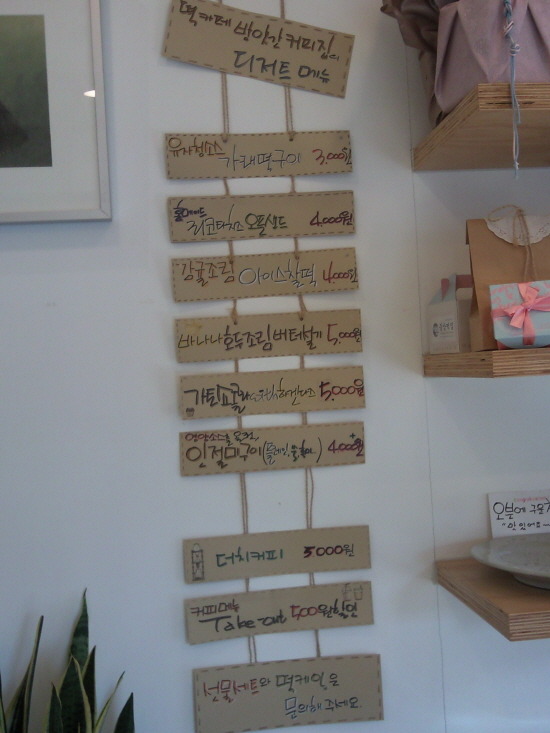 떡카페 방앗간 커피집의
디저트 메뉴
유자청소스
가래떡구이 3,000원
홈메이드
리코타치즈 오픈샌드 4,000원
감귤조림 아이스찰떡 4,000원
바나나호두조림 버터찰기 5,000원
5,000원
인절미구이 4,000원
더치커피 5000원
커피메뉴
Take-out 500원할인
선물세트와 떡케익은
문의해 주세요.
오븐에 구운